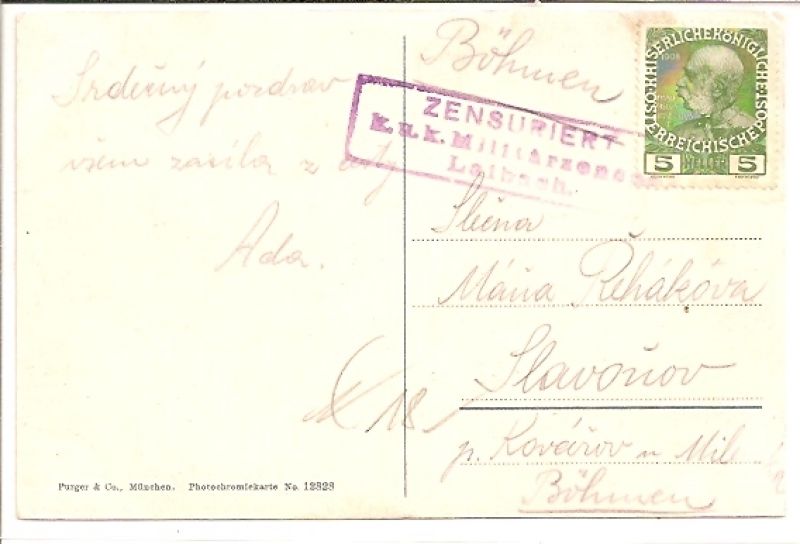 Srdečný pozdrav
všem zasílá z
Ada.
Böhmen
ZENSURIERT
k.u.k. Militärzensur
Laibach.
KAISERLICHEKÖNIGLICHE
ÖSTERREICHISCHEPOST
1908
5 HELLER 5
Slečna
Máňa Řehákova
Slavoňov
p. Kovářov u Mil
Böhmen
18
Purger & Co., München. Photochromiekarte No. 12323